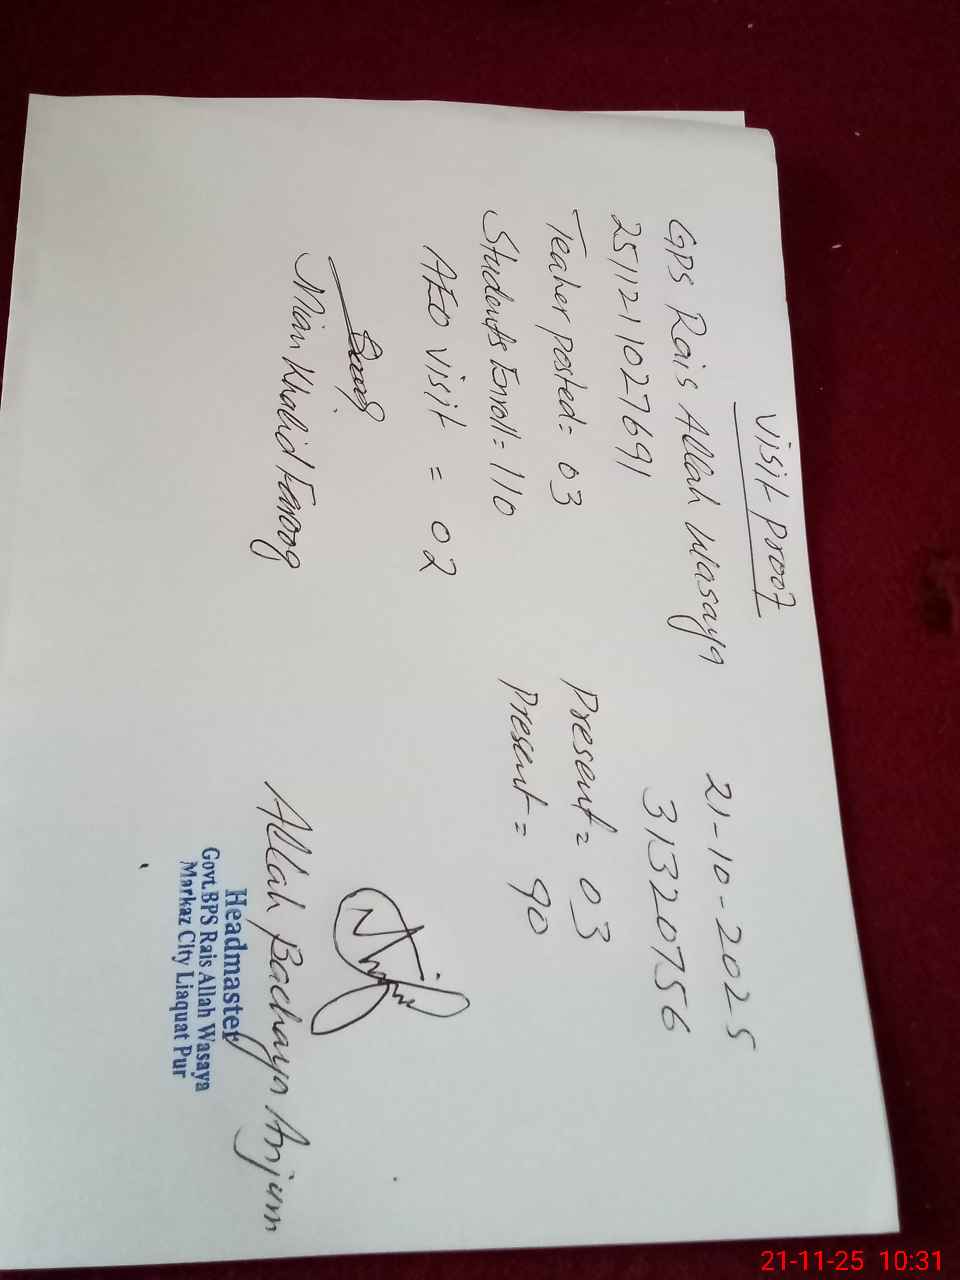 Visit Proof
GPS Rais Allah Wasaya 21-10-2025
2511211027691 31320756
Teaher posted = 03 Present = 03
Students Enroll = 110 Present = 90
AEO Visit = 02
Mian Khalid Farooq
Allah Bachaya Anjum
Headmaster
Govt.BPS Rais Allah Wasaya
Markaz City Liaquat Pur
21-11-25 10:31